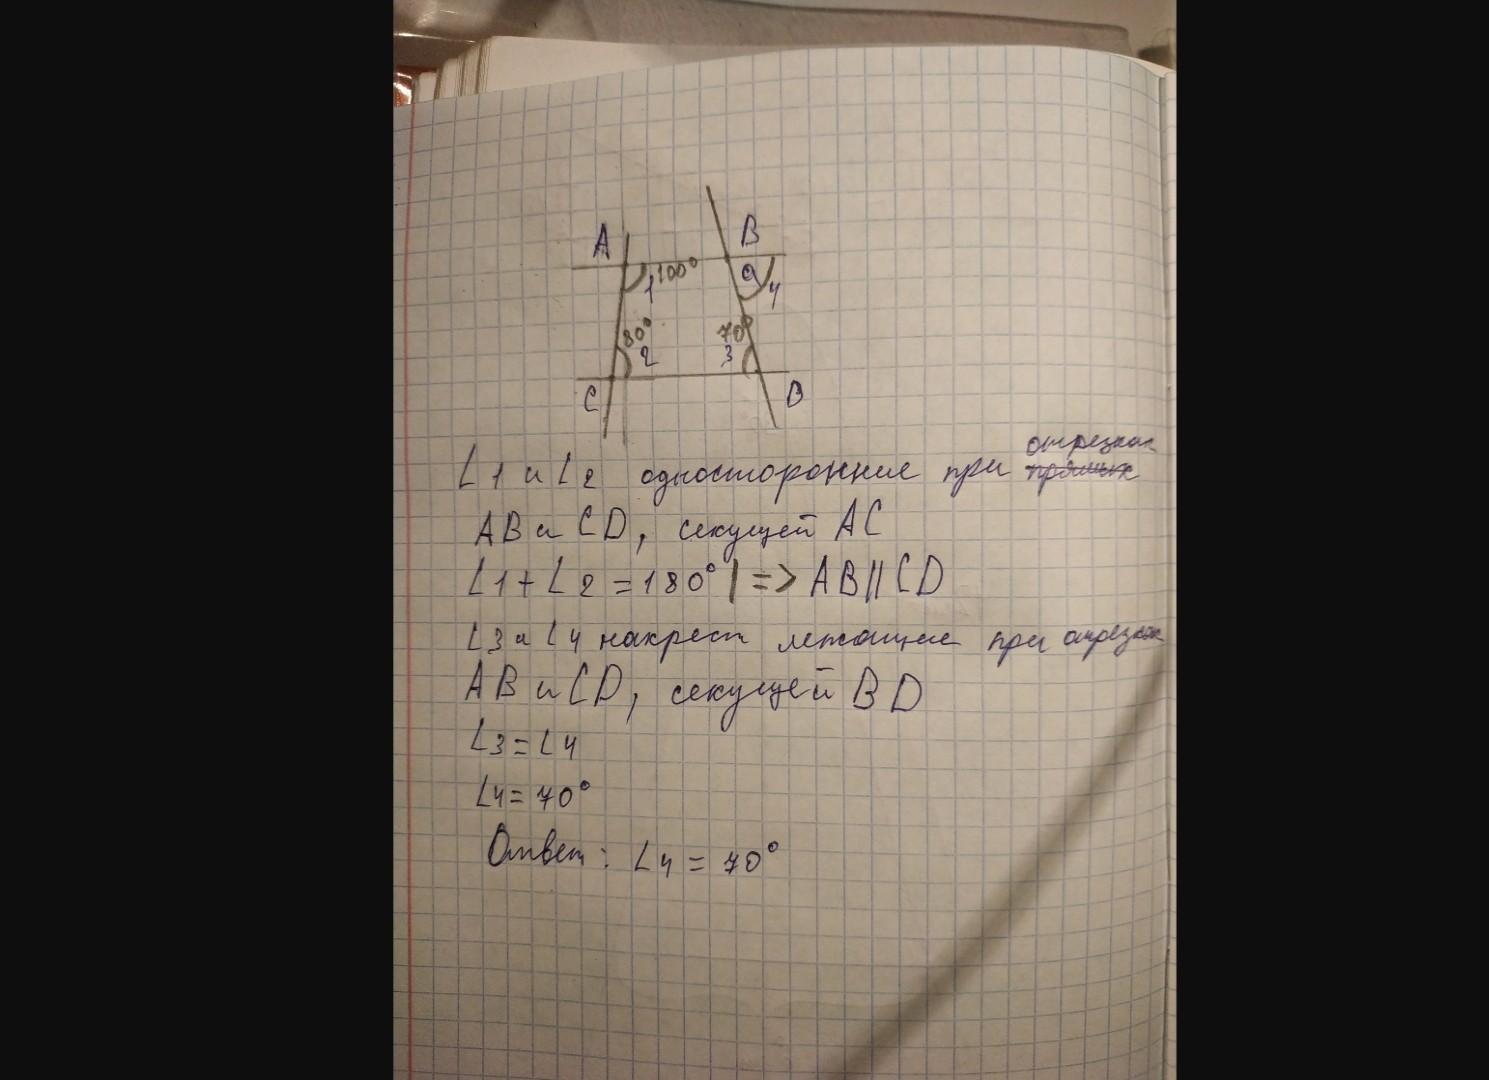 A B
1 100° a 4
80° 70°
2 3
C D
∠1 и ∠2 односторонние при прямых отрезках
AB и CD, секущей AC
∠1 + ∠2 = 180° | => AB || CD
∠3 и ∠4 накрест лежащие при отрезках
AB и CD, секущей BD
∠3 = ∠4
∠4 = 70°
Ответ: ∠4 = 70°